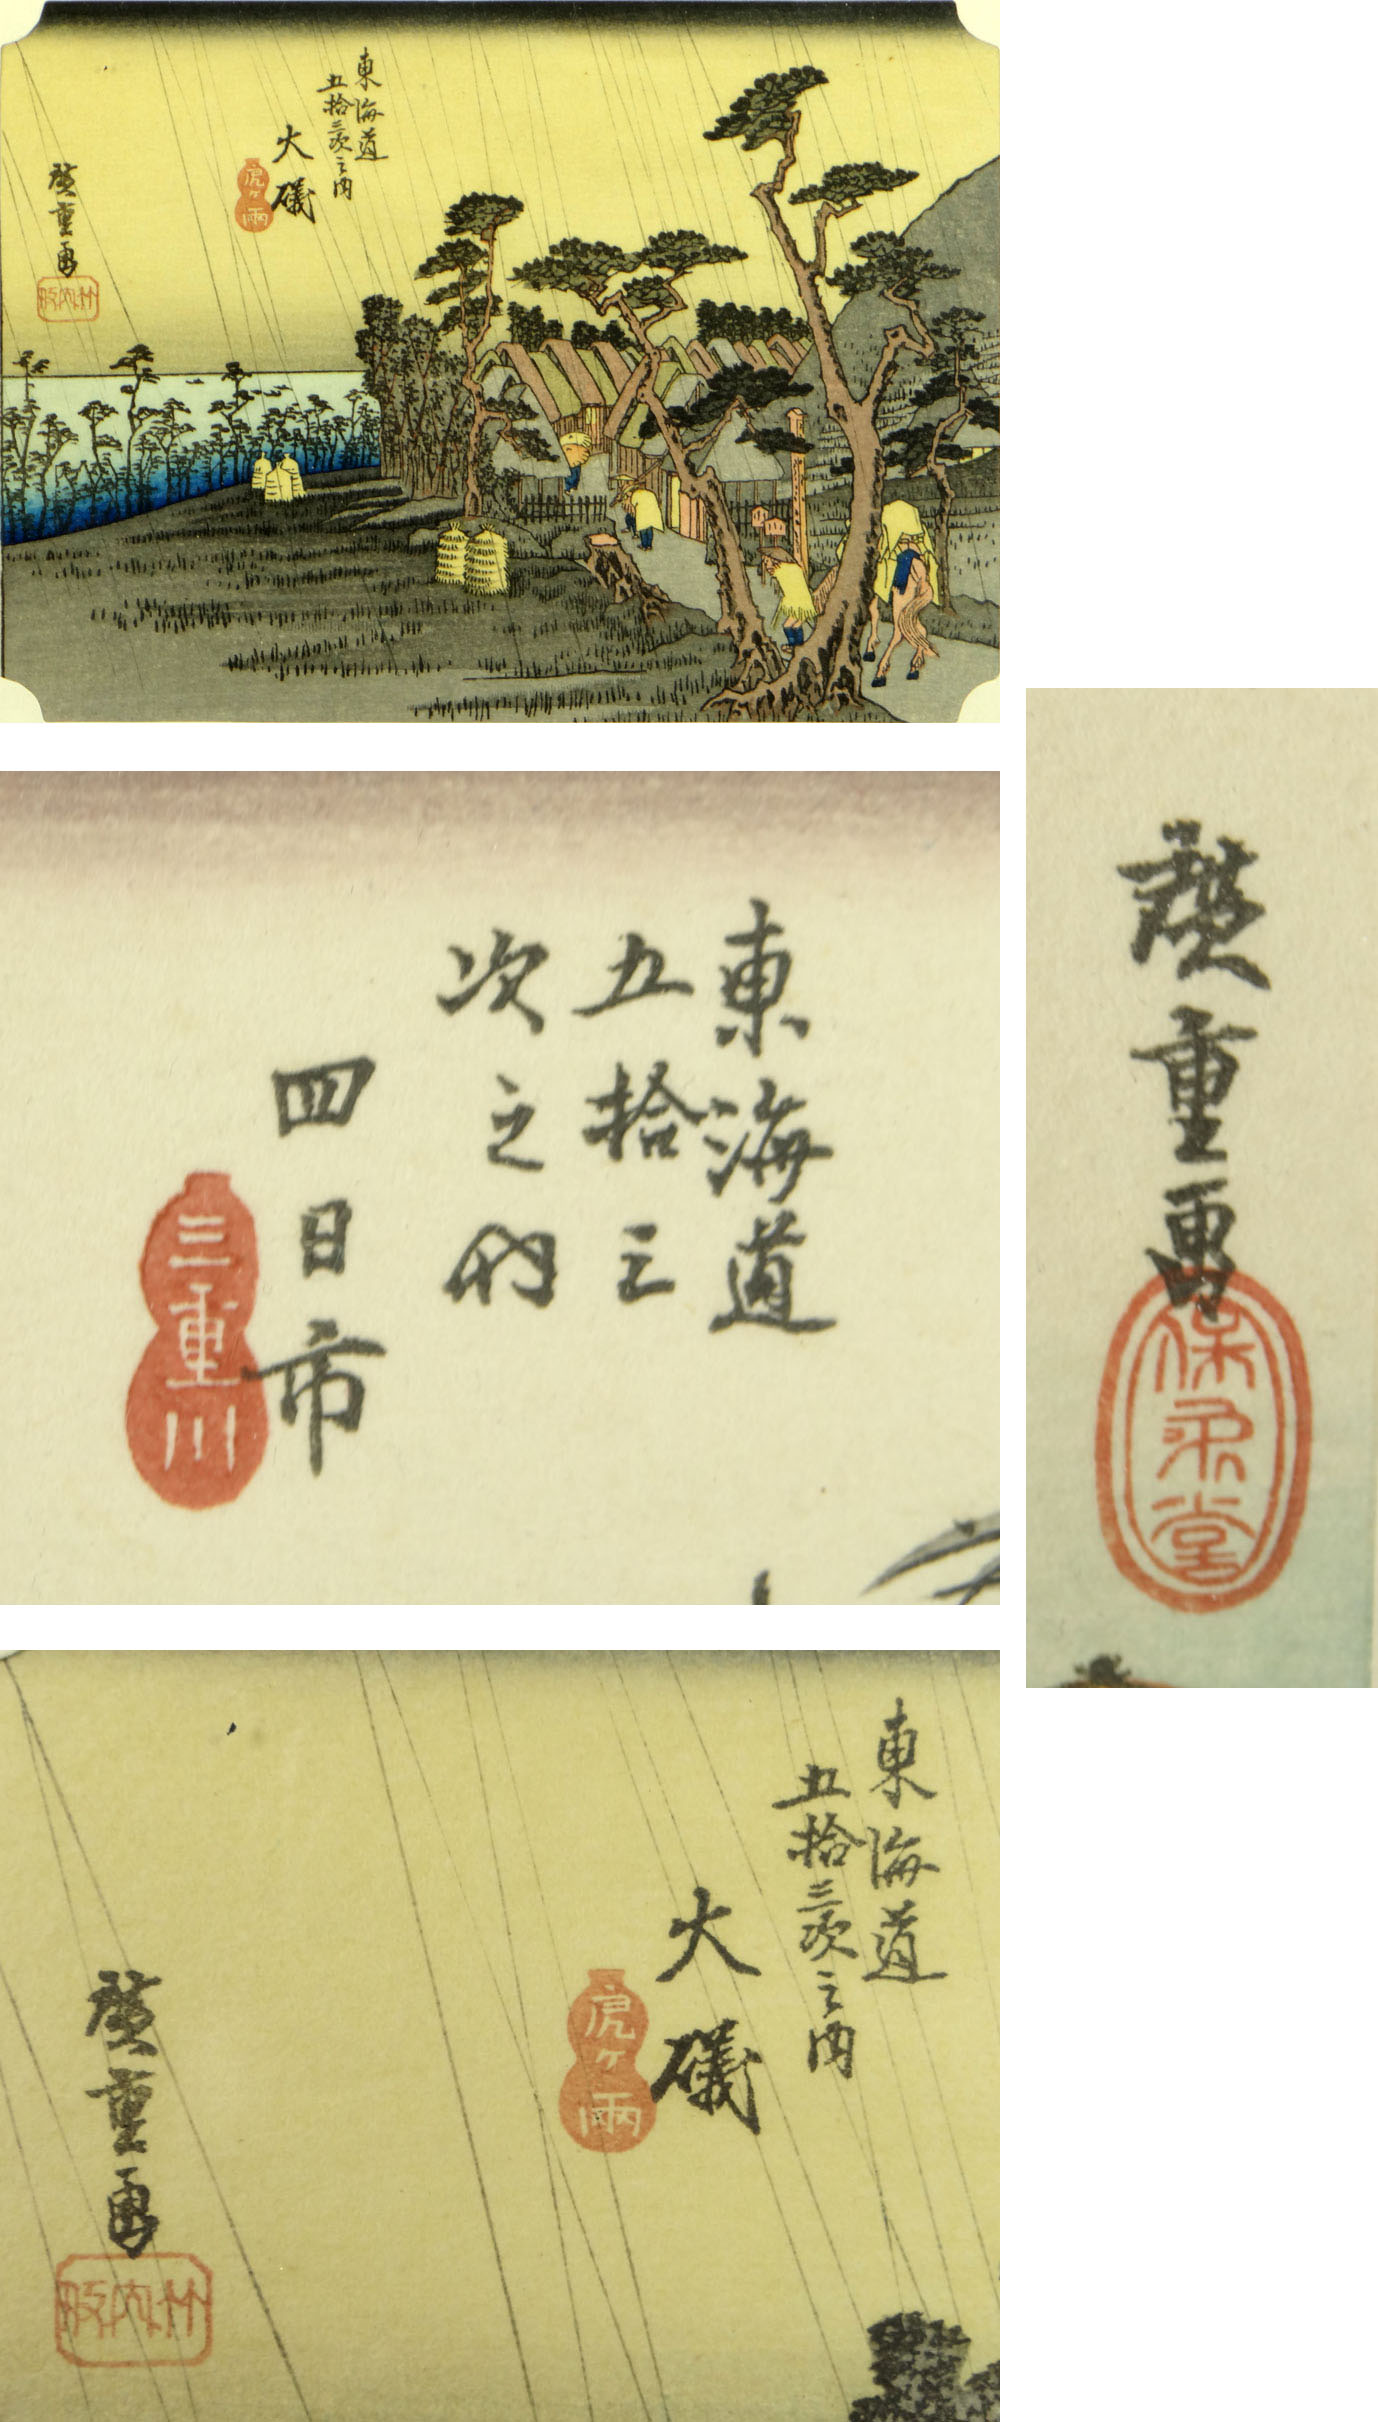 東海道
五拾三次之内
大磯
虎ケ雨
廣重画
竹内版
東海道
五拾三
次之内
四日市
三重川
廣重画
保永堂
東海道
五拾三次之内
大磯
虎ケ雨
廣重画
竹内版